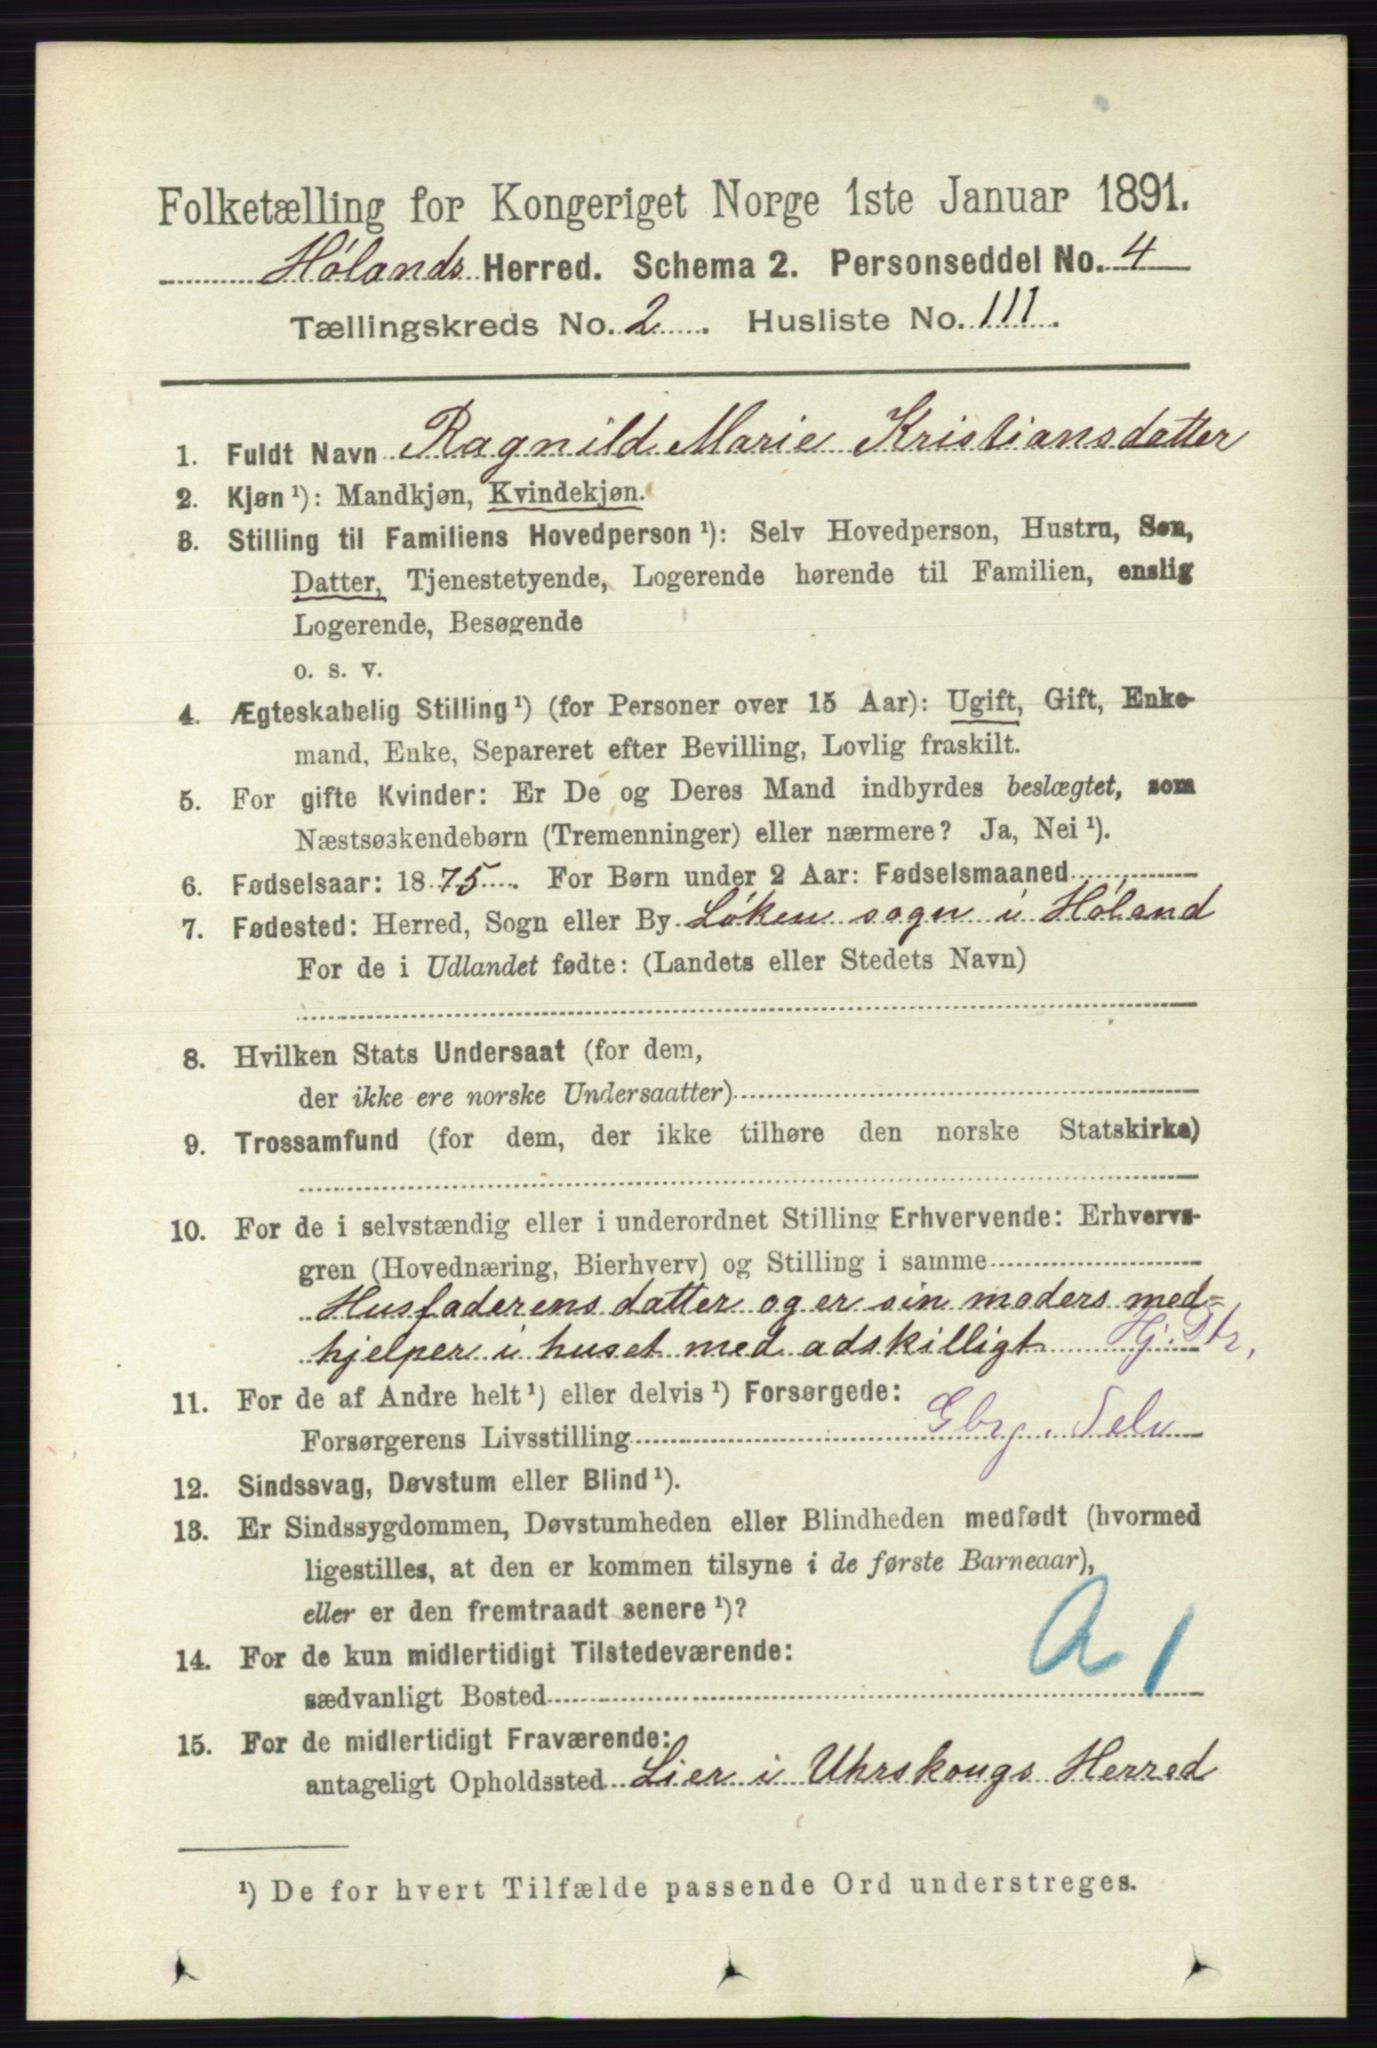 Folketælling for Kongeriget Norge 1ste Januar 1891.
Hölands Herred. Schema 2. Personseddel No. 4
Tællingskreds No. 2. Husliste No. 111.
1. Fuldt Navn Ragnild Marie Kristiansdatter
2. Kjøn ¹): Mandkjøn, Kvindekjøn.
3. Stilling til Familiens Hovedperson ¹): Selv Hovedperson, Hustru, Søn,
Datter, Tjenestetyende, Logerende hørende til Familien, enslig
Logerende, Besøgende
o. s. v.
4. Ægteskabelig Stilling ¹) (for Personer over 15 Aar): Ugift, Gift, Enke-
mand, Enke, Separeret efter Bevilling, Lovlig fraskilt.
5. For gifte Kvinder: Er De og Deres Mand indbyrdes beslægtet, som
Næstsøskendebørn (Tremenninger) eller nærmere? Ja, Nei ¹).
6. Fødselsaar: 1875. For Børn under 2 Aar: Fødselsmaaned
7. Fødested: Herred, Sogn eller By Löken sogn i Höland
For de i Udlandet fødte: (Landets eller Stedets Navn)
8. Hvilken Stats Undersaat (for dem,
der ikke ere norske Undersaatter)
9. Trossamfund (for dem, der ikke tilhøre den norske Statskirke)
10. For de i selvstændig eller i underordnet Stilling Erhvervende: Erhvervs-
gren (Hovednæring, Bierhverv) og Stilling i samme
Husfaderens datter og er sin moders med-
hjelper i huset med adskilligt Hj. Dtr,
11. For de af Andre helt ¹) eller delvis ¹) Forsørgede:
Forsørgerens Livsstilling Gbrg. Selv
12. Sindssvag, Døvstum eller Blind ¹).
13. Er Sindssygdommen, Døvstumheden eller Blindheden medfødt (hvormed
ligestilles, at den er kommen tilsyne i de første Barneaar),
eller er den fremtraadt senere ¹)?
A 1
14. For de kun midlertidigt Tilstedeværende:
sædvanligt Bosted
15. For de midlertidigt Fraværende:
antageligt Opholdssted Lier i Uhrskougs Herred
¹) De for hvert Tilfælde passende Ord understreges.